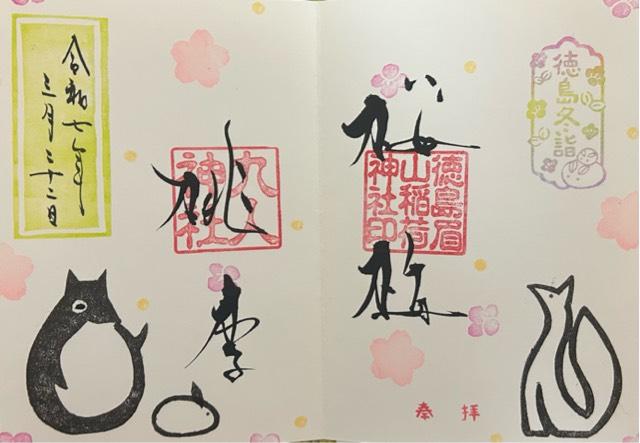 徳島冬詣
奉拝
桜
梅
徳島眉
山稲荷
神社印
桃
李
神社
令和七年
三月二十二日